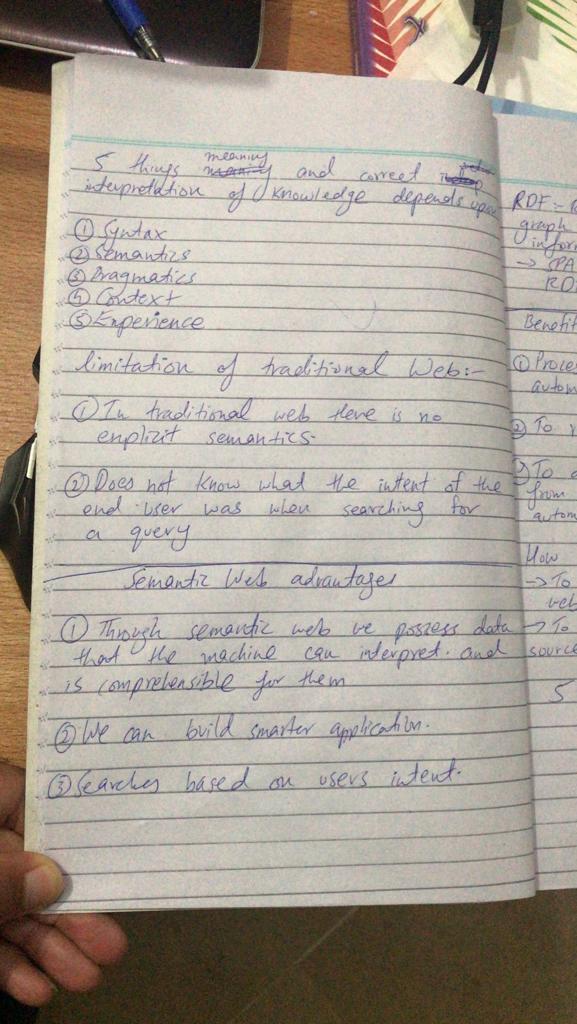 5 things meaning and correct
interpretation of knowledge depends upon
① Syntax
② Semantics
③ Pragmatics
④ Context
⑤ Experience
limitation of traditional Web:-
① In traditional web there is no
explicit semantics.
② Does not know what the intent of the
end user was when searching for
a query
Semantic Web advantages
① Through semantic web we possess data
that the machine can interpret. and
is comprehensible for them
② We can build smarter application.
③ Searches based on users intent.
RDF :-
graph
infor
→ SPA
RD
Benefit
① Proces
autom
② To
③ To
from
autom
How
→ To
web
→ To
source
5